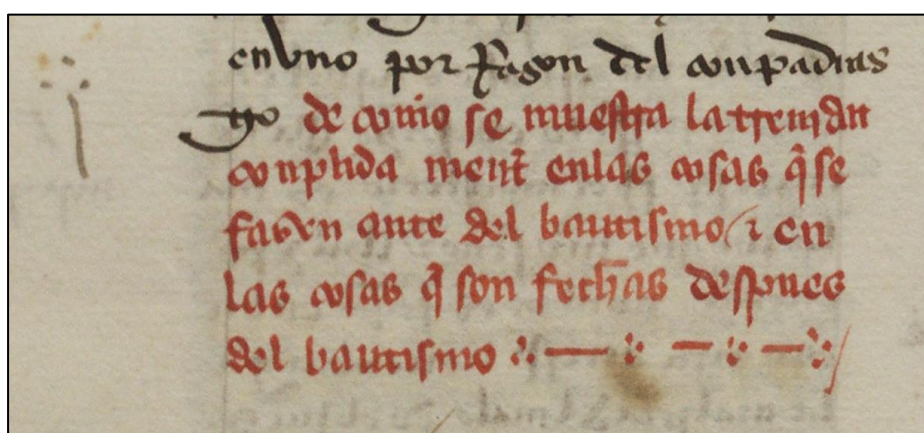 en vno por Razon del conpadras
go de commo se muestra la trenidat
conplida ment̃ enlas cosas q̃ se
fazen ante del bautismo ⁊ en
las cosas q̃ son fechas despues
del bautismo